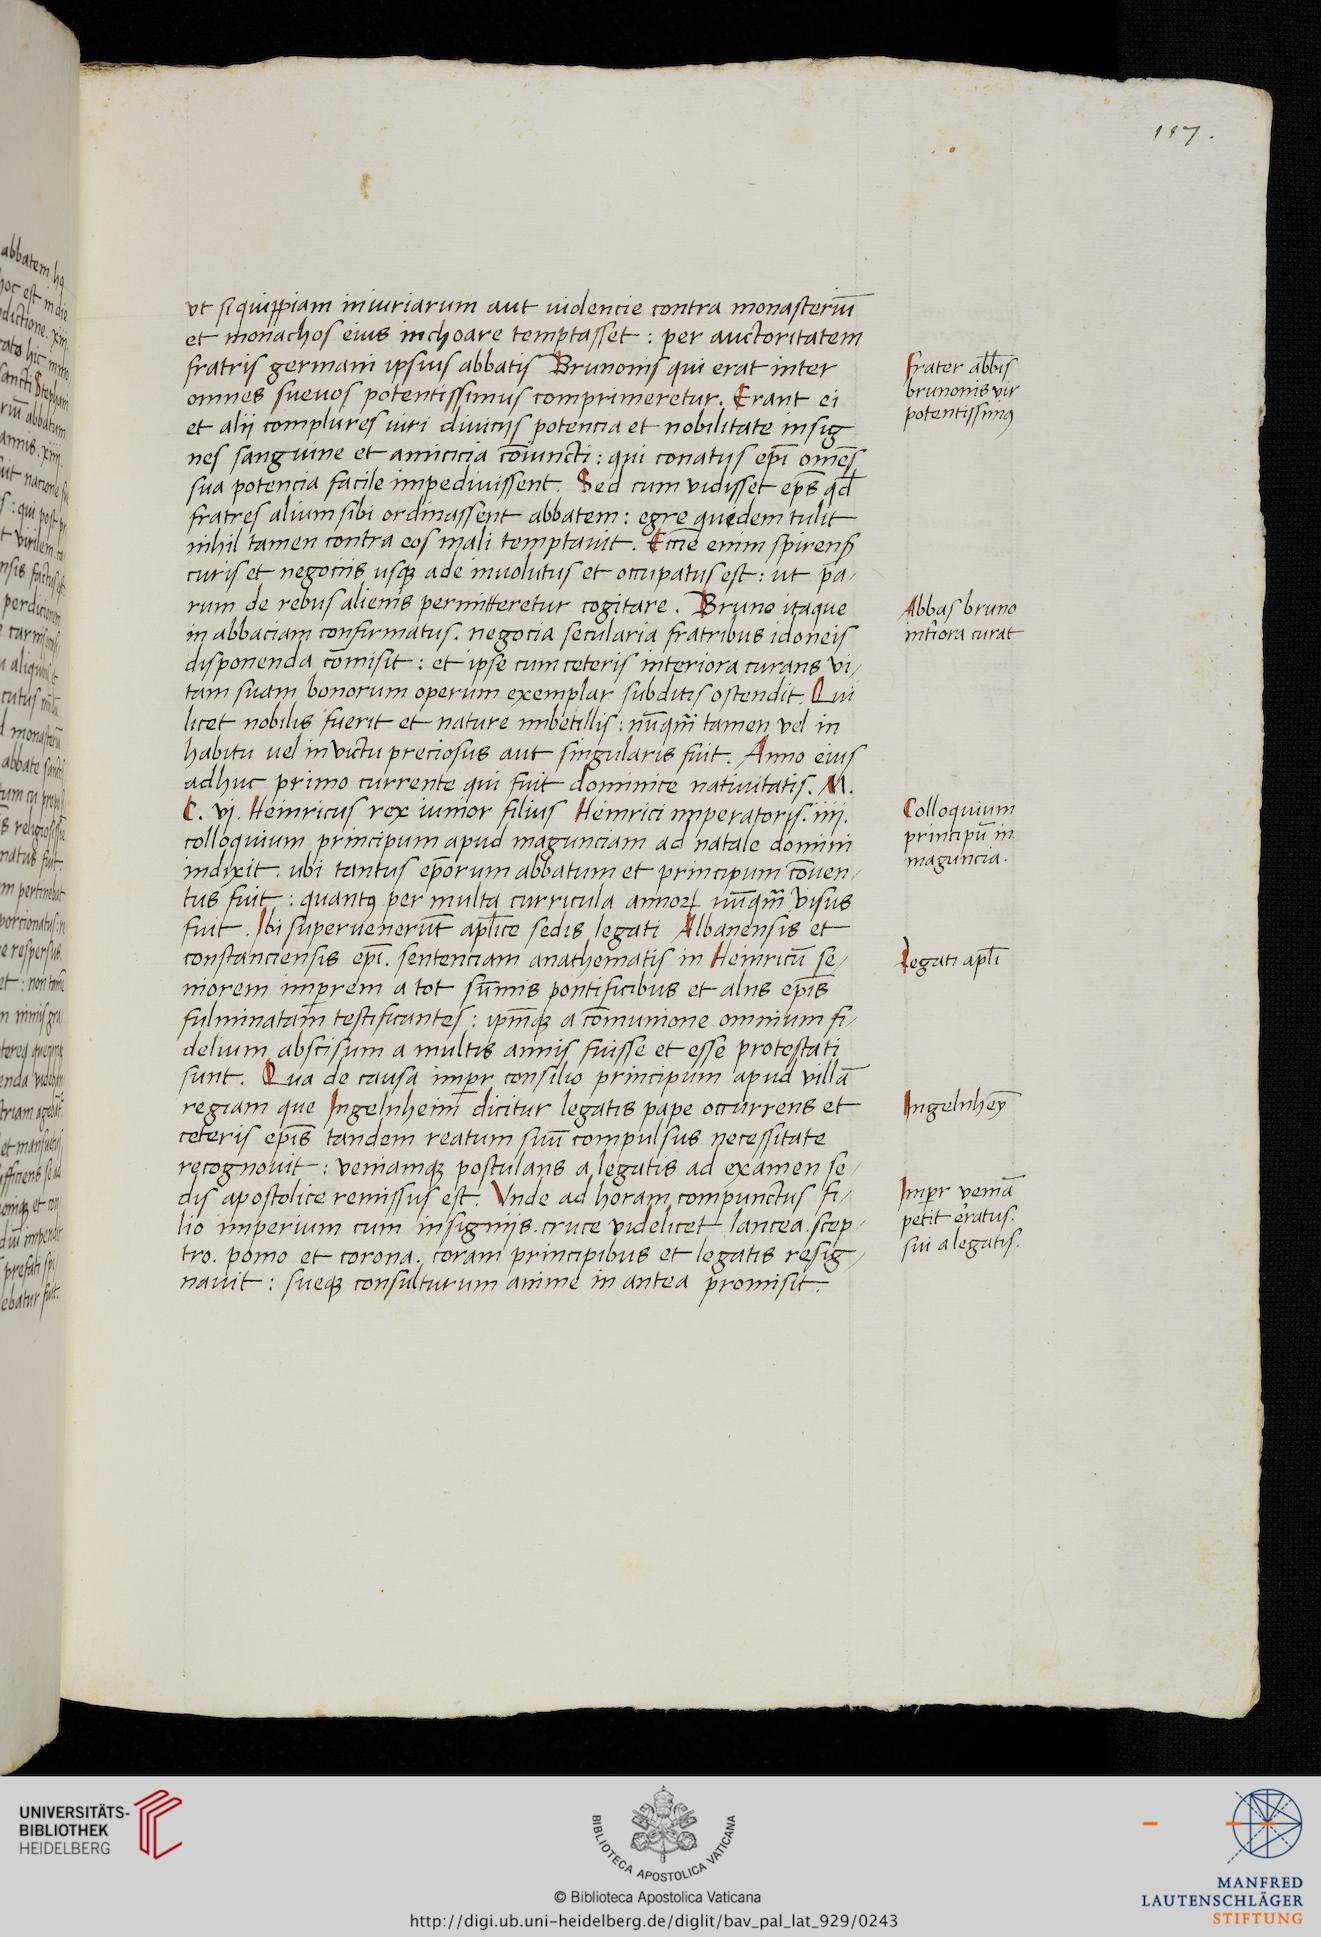 117.
vt si quippiam iniuriarum aut uiolencie contra monasteriū
et monachos eius inchoare temptasset : per auctoritatem
fratris germani ipsius abbatis Brunonis qui erat inter
omnes sueuos potentissimus comprimeretur. Erant ei
et alij complures uiri diuicijs potencia et nobilitate insig
nes sanguine et amicicia cōiuncti : qui conatus ep̄i om̄es
sua potencia facile impediuissent. Sed cum vidisset ep̄s qd̄
fratres alium sibi ordinassent abbatem : egre quidem tulit
nihil tamen contra eos mali temptauit. Eccīe enim spirenß
curis et negociis usqꝫ adeo inuolutus et occupatus est : ut pa/
rum de rebus alienis permitteretur cogitare. Bruno itaque
in abbaciam confirmatus. negocia secularia fratribus idoneis
disponenda cōmisit : et ipse cum ceteris interiora curans vi/
tam suam bonorum operum exemplar subditis ostendit. Qui
licet nobilis fuerit et nature imbecillis : nūqm̄ tamen vel in
habitu uel in victu preciosus aut singularis fuit. Anno eius
adhuc primo currente qui fuit dominice natiuitatis. M.
C. vj. Heinricus rex iunior filius Heinrici imperatoris. iiij.
colloquium principum apud magunciam ad natale domini
indixit. ubi tantus ep̄orum abbatum et principum cōuen/
tus fuit : quantꝯ per multa curricula annoꝝ nūqm̄ visus
fuit. Ibi superuenerūt apl̄ice sedis legati Albanensis et
constanciensis ep̄i. sentenciam anathematis in Heinricū se/
niorem imp̄rem a tot sūmis pontificibus et aliis ep̄is
fulminatam testificantes : ip̄mqꝫ a cōmunione omnium fi/
delium abscisum a multis annis fuisse et esse protestati
sunt. Qua de causa imp̄r consilio principum apud villā
regiam que Ingelnheim dicitur legatis pape occurrens et
ceteris ep̄is tandem reatum suū compulsus necessitate
recognouit : veniamqꝫ postulans a legatis ad examen se/
dis apostolice remissus est. Vnde ad horam compunctus fi/
lio imperium cum insignijs. cruce videlicet lancea. scep/
tro. pomo et corona. coram principibus et legatis resig/
nauit : sueqꝫ consulturum anime in antea promisit.
frater abb̄is
brunonis vir
potentissimꝯ
Abbas bruno
intīora curat
Colloquium
principū in
maguncia.
Legati apl̄i
Ingelnheȳ
Imp̄r veniā
petit er̄atus.
sui a legatis.
UNIVERSITÄTS-
BIBLIOTHEK
HEIDELBERG
BIBLIOTECA APOSTOLICA VATICANA
© Biblioteca Apostolica Vaticana
http://digi.ub.uni-heidelberg.de/diglit/bav_pal_lat_929/0243
MANFRED
LAUTENSCHLÄGER
STIFTUNG